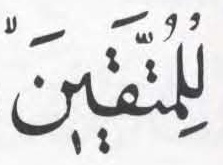 لِلْمُتَّقِينَ ۙ